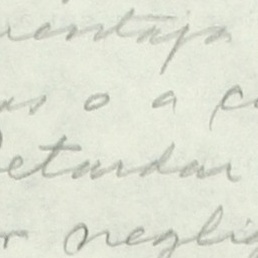 ventaja
as o a c
Retardar
r neglig